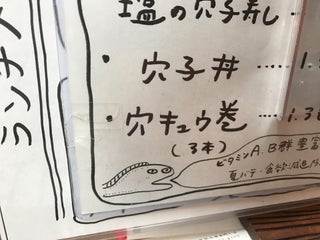 塩の穴子寿し
・穴子丼 …… 1.
・穴キュウ巻 …… 1.3
(3本)
ビタミンA.B群豊富
夏バテ・食欲減退
ランチ